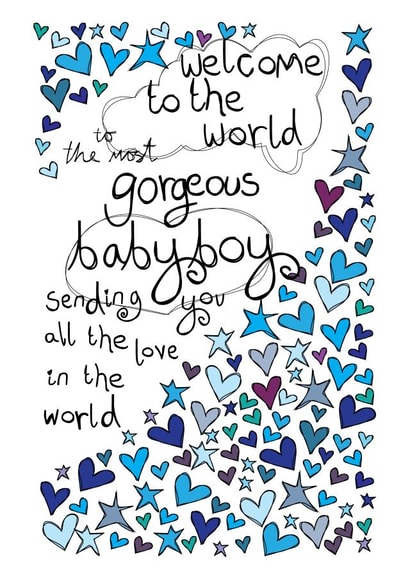 welcome
to the
world
to
the most
gorgeous
baby boy
sending you
all the love
in the
world